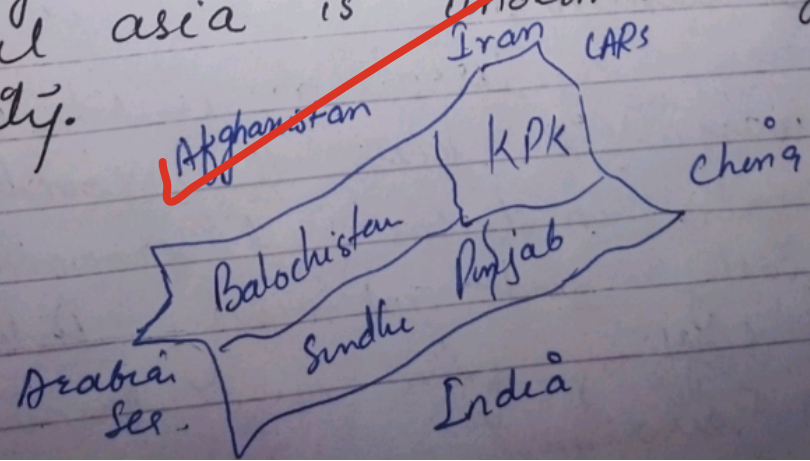 l asia is
dy.
Iran CARs
Afghanistan
KPK
China
Balochistan
Punjab
Sindhe
Arabian
See.
India